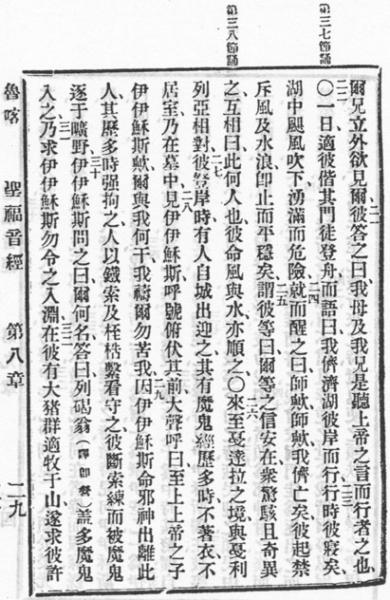 第三七節誦
第三八節誦
爾兄立外欲見爾二一彼答之曰我母及我兄是聽上帝之言而行者之也
二二〇一日適彼偕其門徒登舟而語曰我儕濟湖彼岸而行二三行時彼寢矣
湖中颶風吹下湧滿而危險二四就而醒之曰師歟師歟我儕亡矣彼起禁
斥風及水浪卽止而平穩矣二五謂彼等曰爾等之信安在衆驚駭且奇異
之互相曰此何人也彼命風與水亦順之〇二六來至戞達拉之境與戞利
列亞相對二七彼登岸時有人自城出迎之其有魔鬼經歷多時不著衣不
居室乃在墓中二八見伊伊穌斯呼號俯伏其前大聲呼曰至上上帝之子
伊伊穌斯歟爾與我何干我禱爾勿苦我二九因伊伊穌斯命邪神出離此
人其歷多時强拘之人以鐵索及桎梏繫看守之彼斷索練而被魔鬼
逐于曠野三十伊伊穌斯問之曰爾何名答曰列碣翁(譯卽營)蓋多魔鬼
入之三一乃求伊伊穌斯勿令之入淵三二在彼有大猪群適牧于山遂求彼許
魯喀 聖福音經 第八章 二九